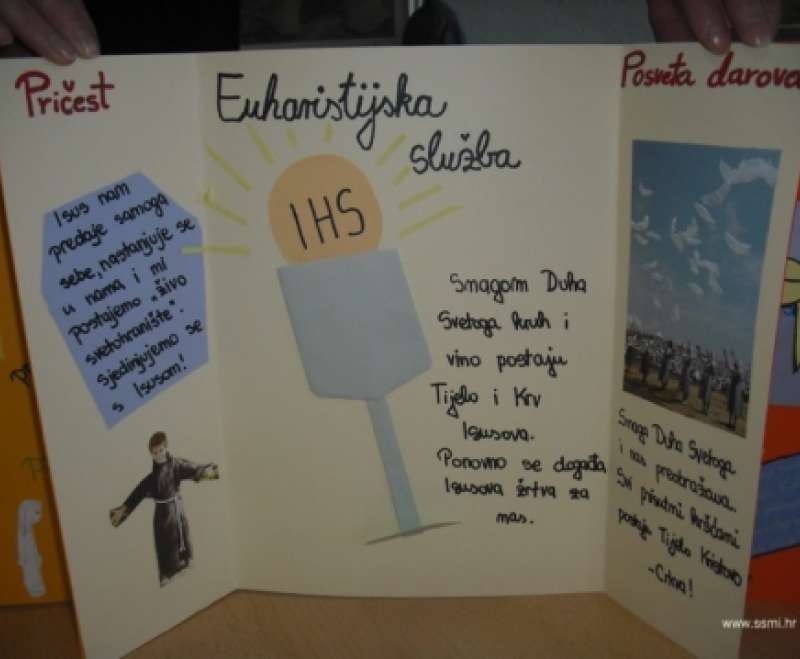 Pričest
Isus nam
predaje samoga
sebe, nastanjuje se
u nama i mi
postajemo "živo
svetohranište".
sjedinjujemo se
s Isusom!
Euharistijska
služba
IHS
Snagom Duha
Svetoga kruh i
vino postaju
Tijelo i Krv
Isusova.
Ponovno se događa
Isusova žrtva za
nas.
Posveta darova
Snaga Duha Svetoga
i nas preobražava.
Svi prisutni kršćani
postaju Tijelo Kristovo
-Crkva!
www.ssmi.hr